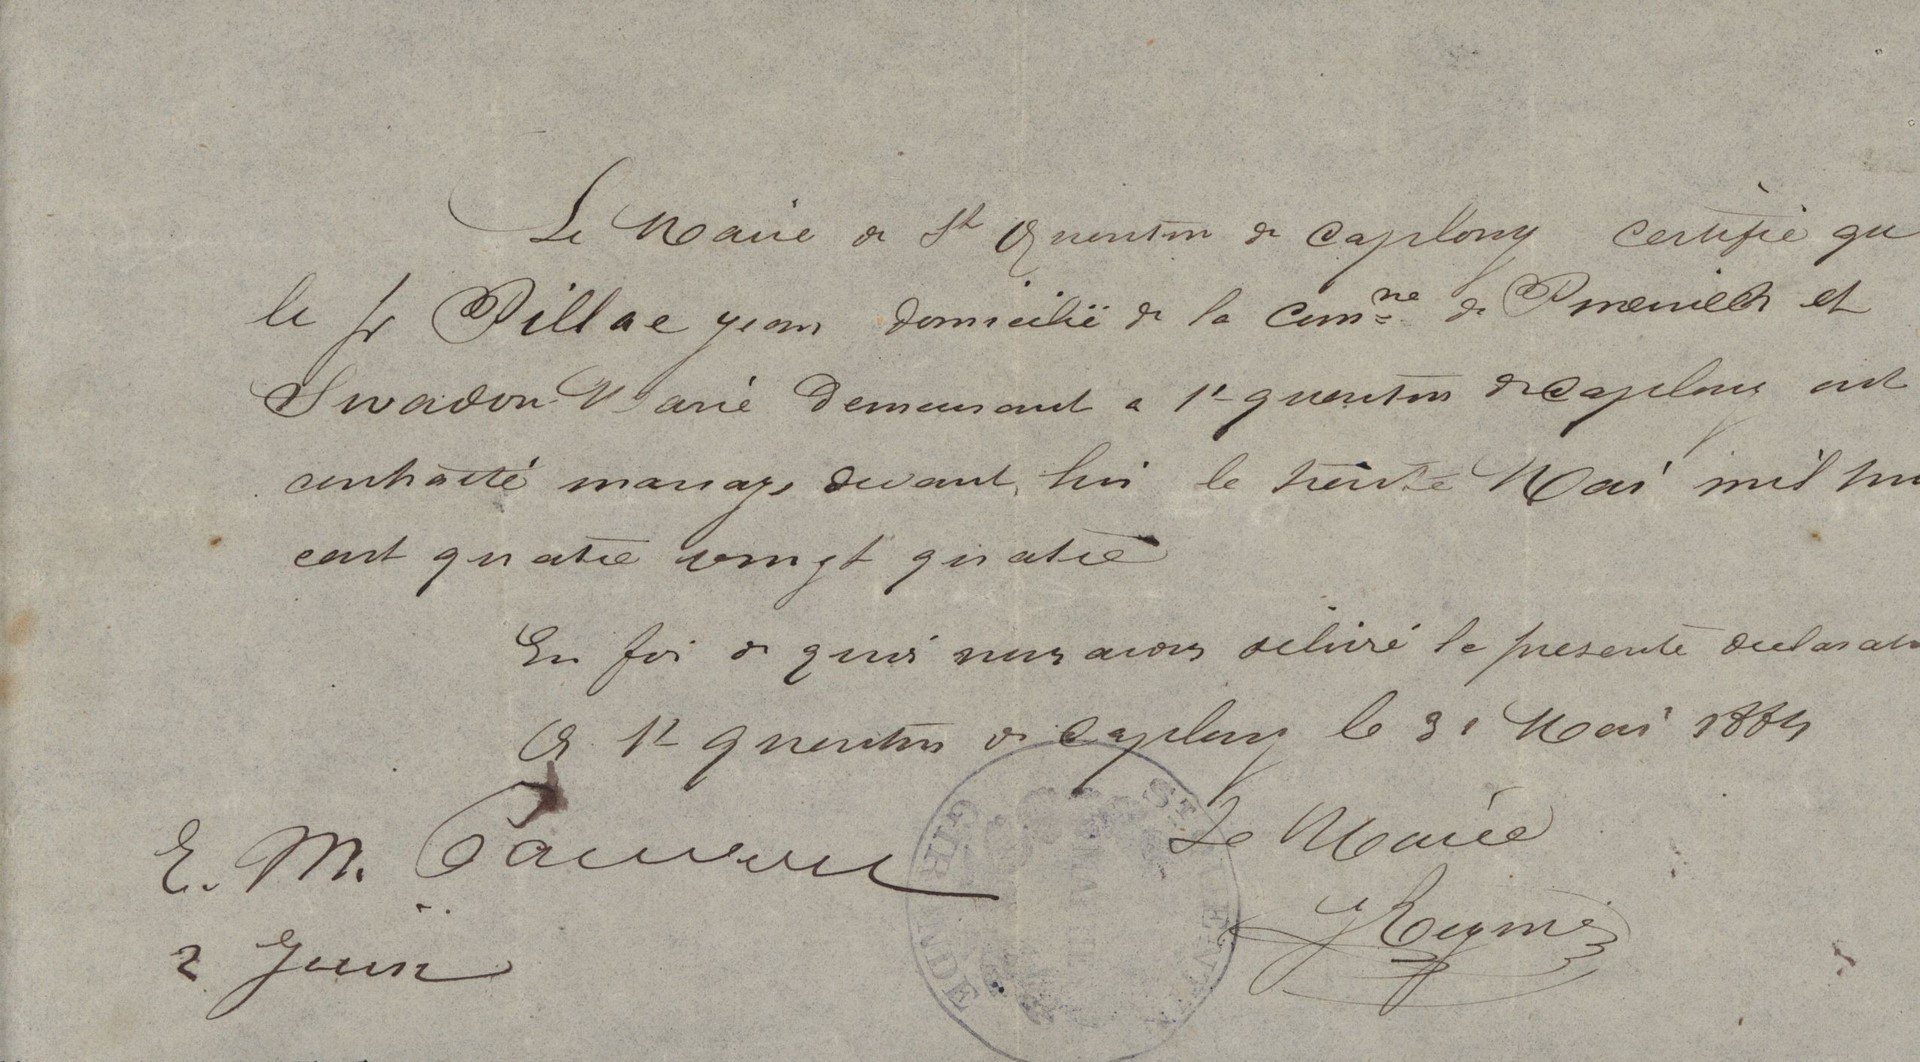 Le Maire de St Quentin de Caplong certifie qu
le sr Pillae jean domicilié de la comne de et
Swadon Marie demeurant a St quentin de Caplong ont
contracté mariage devant lui le trente Mai mil hu
cent quatre vingt quatre
En foi de quoi nous avons délivré la presente declarat
A St quentin de Caplong le 31 Mai 1884
Le Maire
E. M.
2 Juin
GIRONDE